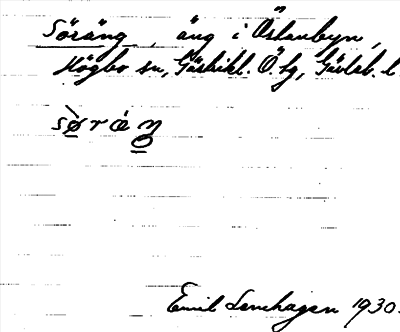 Söräng, äng i Östanbyn,
Högbo sn, Gästrikl. Ö. tg, Gävleb. l.
sø̀rάŋ
Emil Lenhagen 1930.